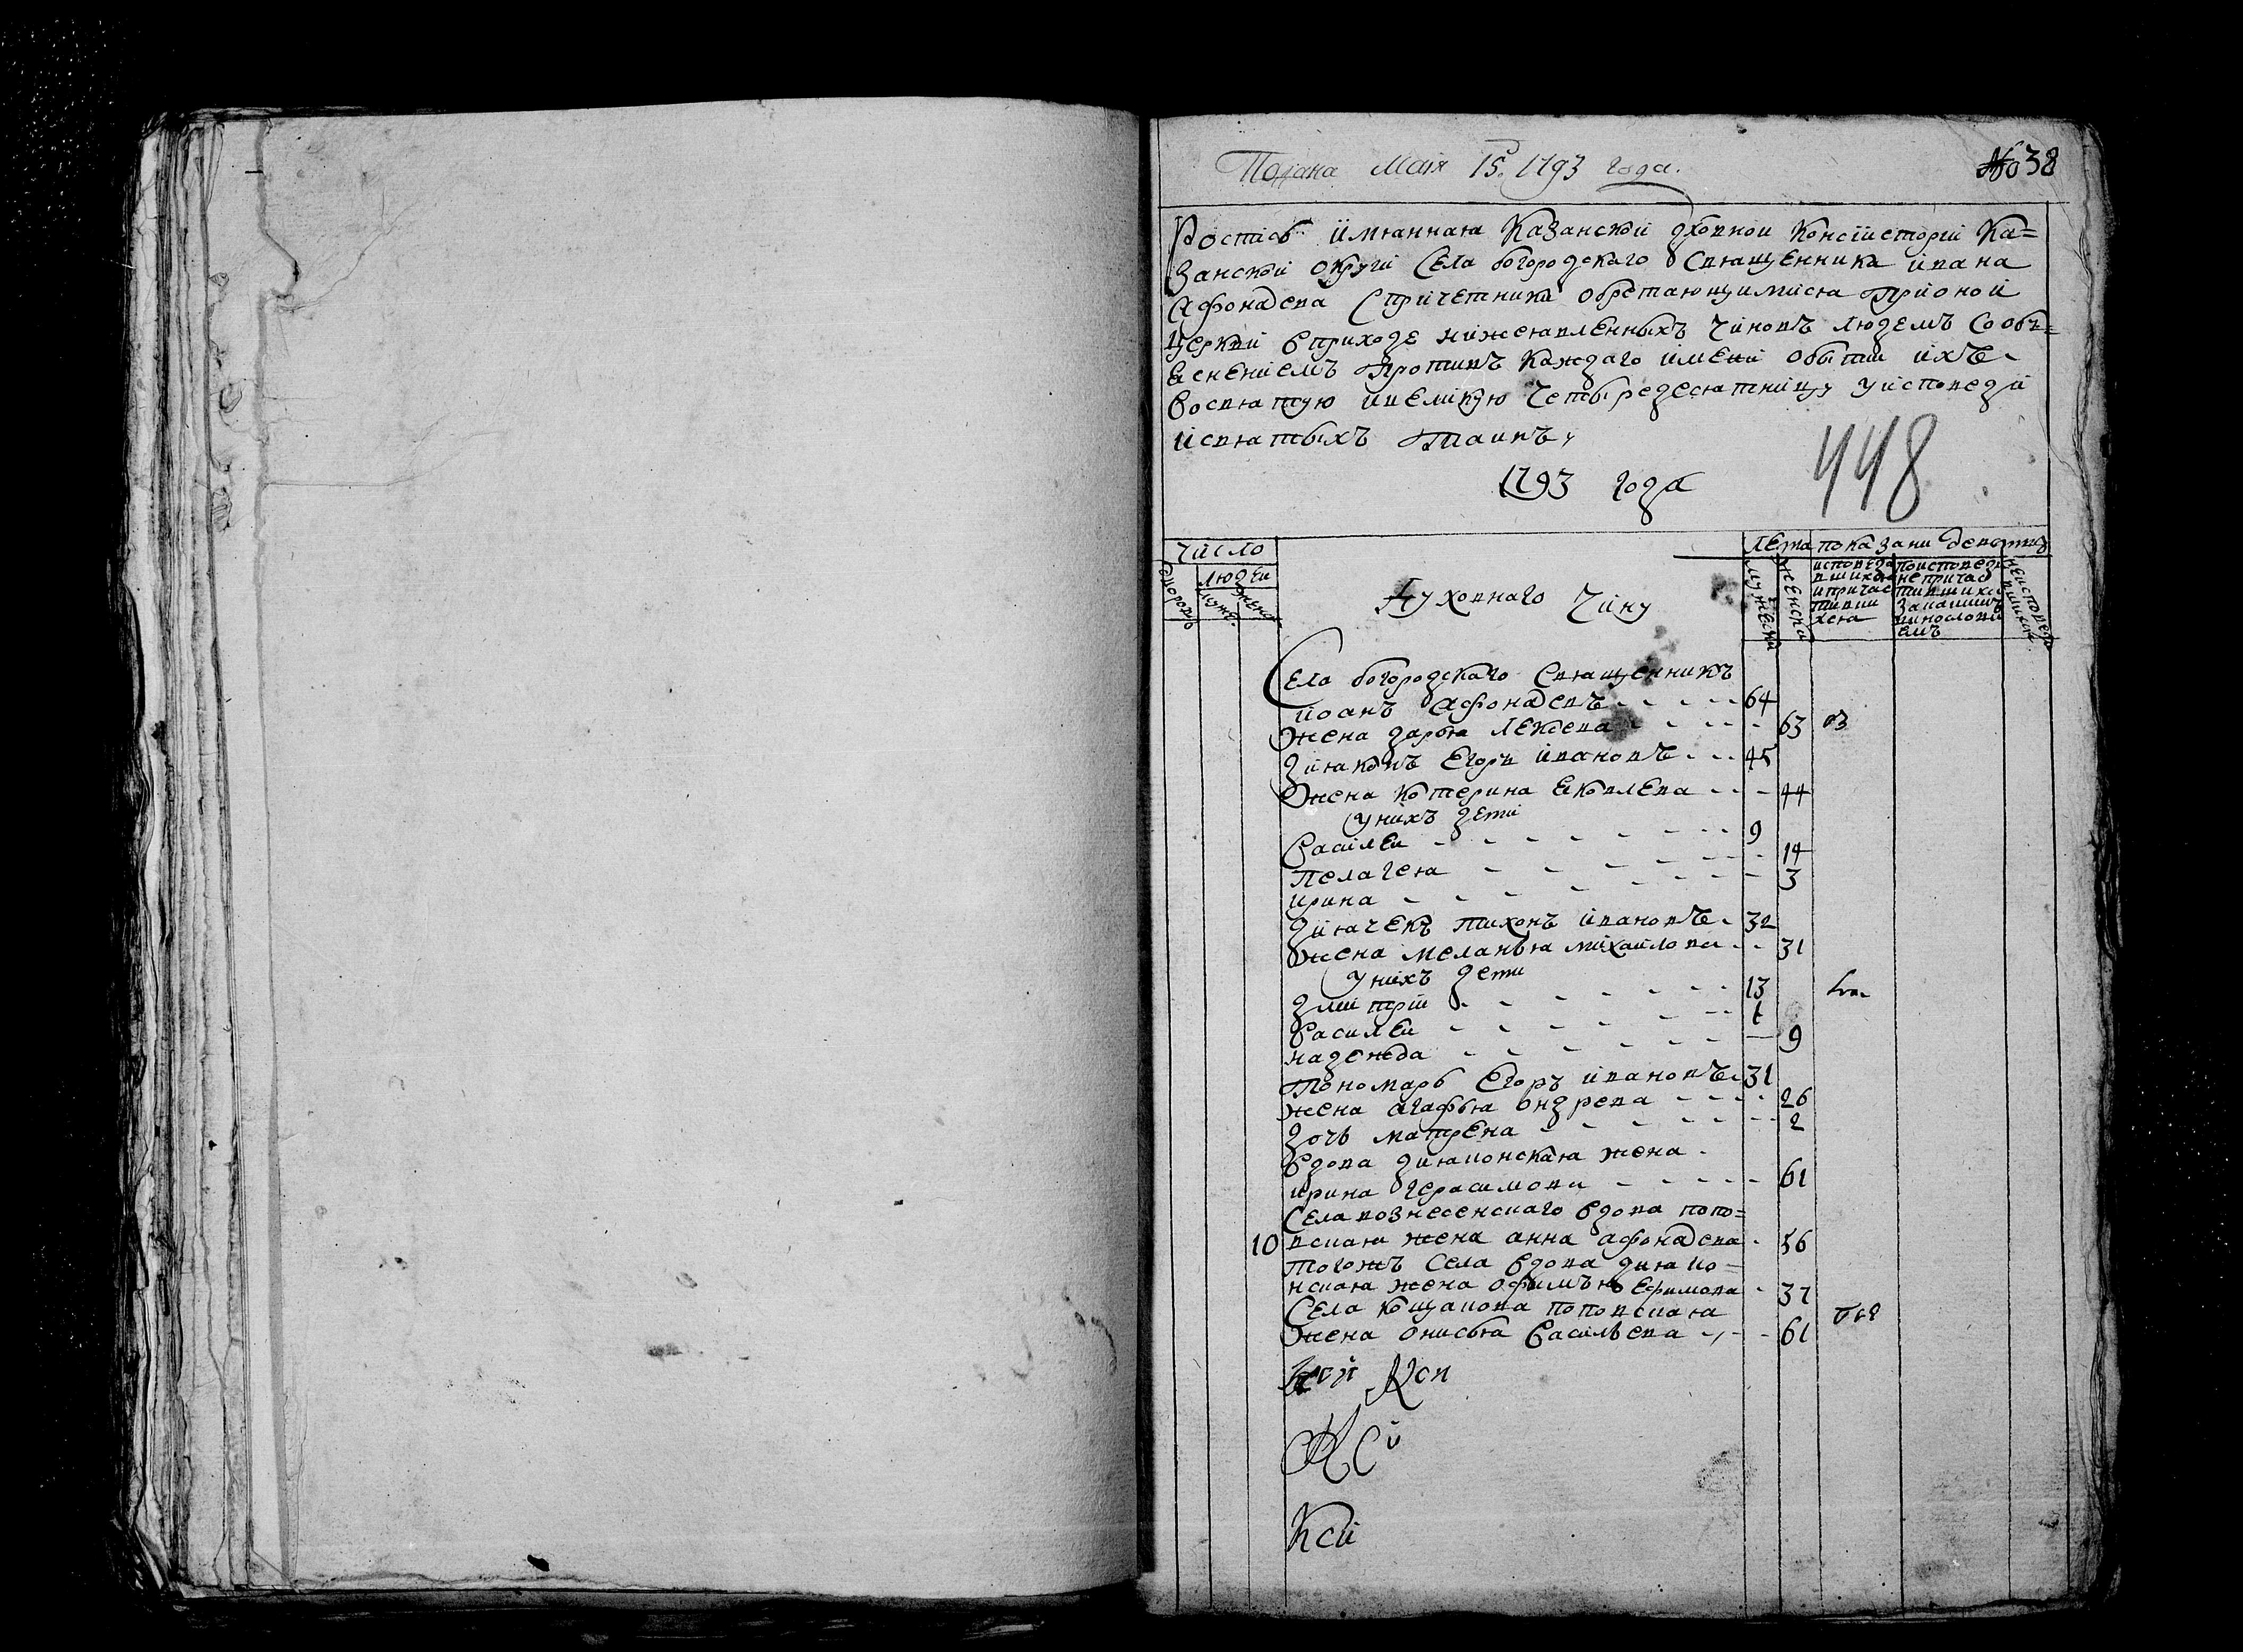 Подана Маія 15. 1793 года.
№ 38
Роспись имянная Казанской дховной Консисторіи Ка=
занской округи Села богородскаго Священника ивана
Афонасева Спричетники обретающимися при оной
Церкви вприходе нижеявленныхъ Чиновъ людемъ Сообъ=
еснениемъ противъ каждаго имени обытии ихъ
восвятую ивеликую Четыредесятницу уисповеди
исвятыхъ таинъ
1793 года
448
Число
людеи
дворовъ
муже.
женс.
Духовнаго Чину
лета
мужеска
женска
показани действ
исповеда
вшихся
ипричас
тивши
хся
поисповед
непричас
тившихся
неисповеда
вшихся
Села богородскаго Священникъ
иоанъ Афонасевъ 64
жена дарья Лексева 63
дияконъ Егоръ ивановъ 45
жена котерина Ековлева 44
уних дети
Василеи 9
пелагея 14
ирина 3
диячекъ тихонъ ивановъ 32
жена меланья михаилова 31
унихъ дети
дмитрии 13
Василеи 1
надежда 9
пономарь Егоръ ивановъ 31
жена агафья ондрева 26
дочь матрена 2
вдова дияконская жена
ирина герасимова 61
Села вознесенскаго вдова попо=
10 вская жена анна афонасева 56
тогожъ Села вдова дияко=
нская жена офимъя Ефимова 37
Села кощакова поповская
жена онисья Васильева 61